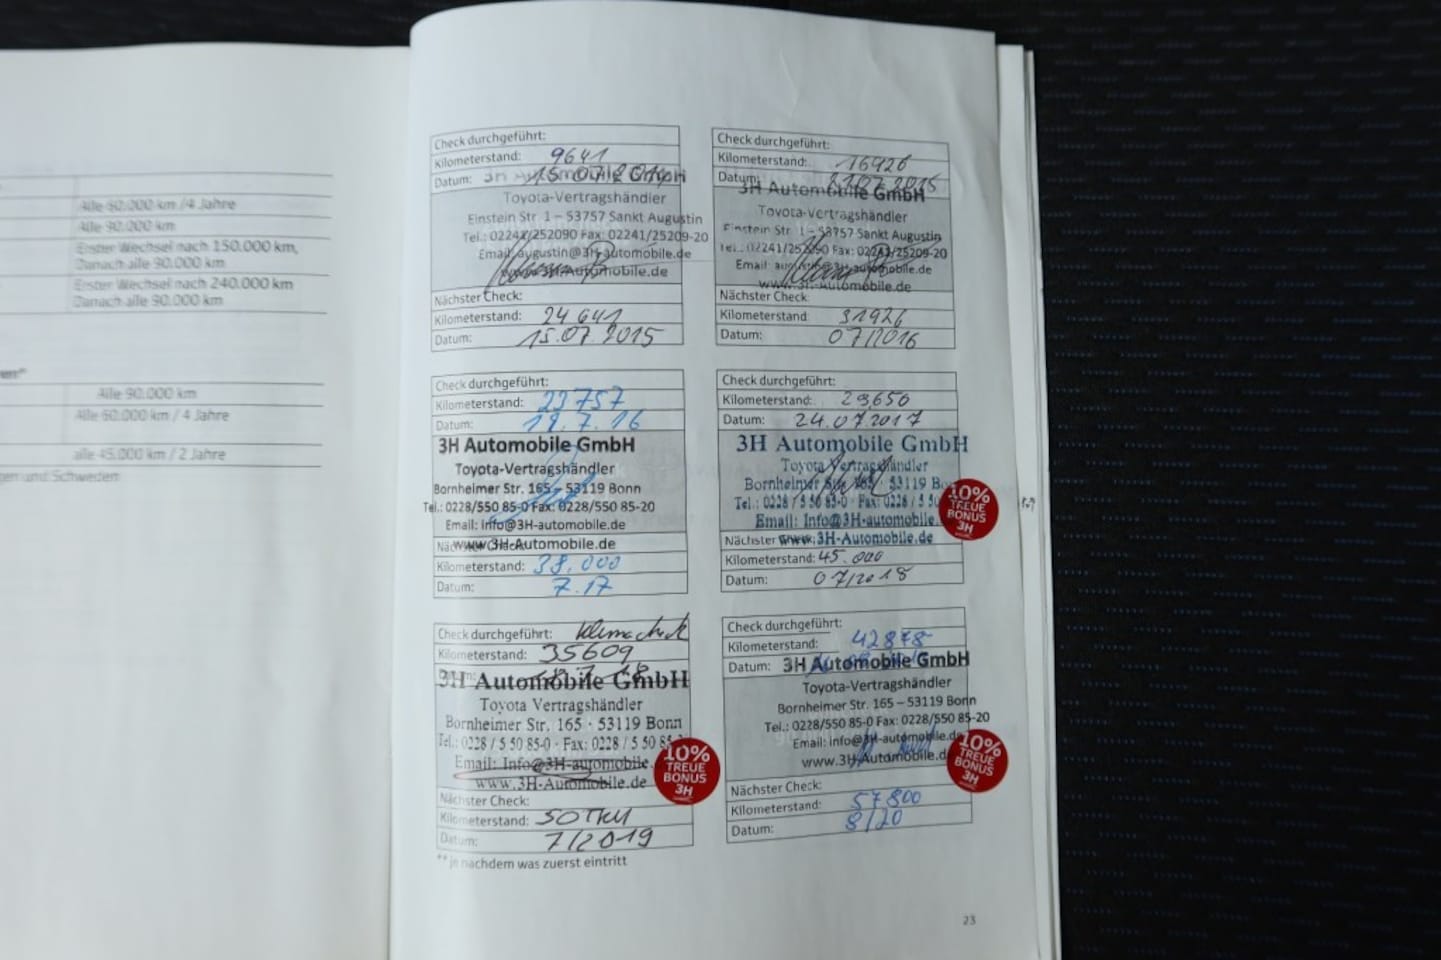 Alle 60.000 km /4 Jahre
Alle 90.000 km
Erster Wechsel nach 150.000 km,
Danach alle 90.000 km
Erster Wechsel nach 240.000 km
Danach alle 90.000 km
Alle 90.000 km
Alle 60.000 km / 4 Jahre
alle 45.000 km / 2 Jahre
und Schweden
Check durchgeführt:
Kilometerstand: 9641
Datum: 15.07.2014
3H Automobile GmbH
Toyota-Vertragshändler
Einstein Str. 1 – 53757 Sankt Augustin
Tel.: 02241/252090 Fax: 02241/25209-20
Email: augustin@3H-automobile.de
www.3H-Automobile.de
Nächster Check:
Kilometerstand: 24641
Datum: 15.07.2015
Check durchgeführt:
Kilometerstand: 16926
Datum: 2015
3H Automobile GmbH
Toyota-Vertragshändler
Einstein Str. 1 – 53757 Sankt Augustin
Tel.: 02241/252090 Fax: 02241/25209-20
Email: augustin@3H-automobile.de
www.3H-Automobile.de
Nächster Check:
Kilometerstand: 31926
Datum: 07/2016
Check durchgeführt:
Kilometerstand: 23757
Datum: 7.16
3H Automobile GmbH
Toyota-Vertragshändler
Bornheimer Str. 165 – 53119 Bonn
Tel.: 0228/550 85-0 Fax: 0228/550 85-20
Email: Info@3H-automobile.de
www.3H-Automobile.de
Nächster Check:
Kilometerstand: 38.000
Datum: 7.17
Check durchgeführt:
Kilometerstand: 29.650
Datum: 24.07.2017
3H Automobile GmbH
Toyota Vertragshändler
Bornheimer Str. 165 · 53119 Bo
Tel.: 0228 / 5 50 85-0 · Fax: 0228 / 5 50
Email: Info@3H-automobile.
www.3H-Automobile.de
10%
TREUE
BONUS
3H
Nächster
Kilometerstand: 45.000
Datum: 07/2018
Check durchgeführt: Klimacheck
Kilometerstand: 35609
3H Automobile GmbH
Toyota Vertragshändler
Bornheimer Str. 165 · 53119 Bonn
Tel.: 0228 / 5 50 85-0 · Fax: 0228 / 5 50 85
Email: Info@3H-automobile.
www.3H-Automobile.de
10%
TREUE
BONUS
3H
Nächster Check:
Kilometerstand: 50TKM
Datum: 7/2019
Check durchgeführt:
Kilometerstand: 42878
Datum:
3H Automobile GmbH
Toyota-Vertragshändler
Bornheimer Str. 165 – 53119 Bonn
Tel.: 0228/550 85-0 Fax: 0228/550 85-20
Email: info@3H-automobile.de
www.3H-Automobile.d
10%
TREUE
BONUS
3H
Nächster Check:
Kilometerstand: 57800
Datum: 8/20
** je nachdem was zuerst eintritt
23